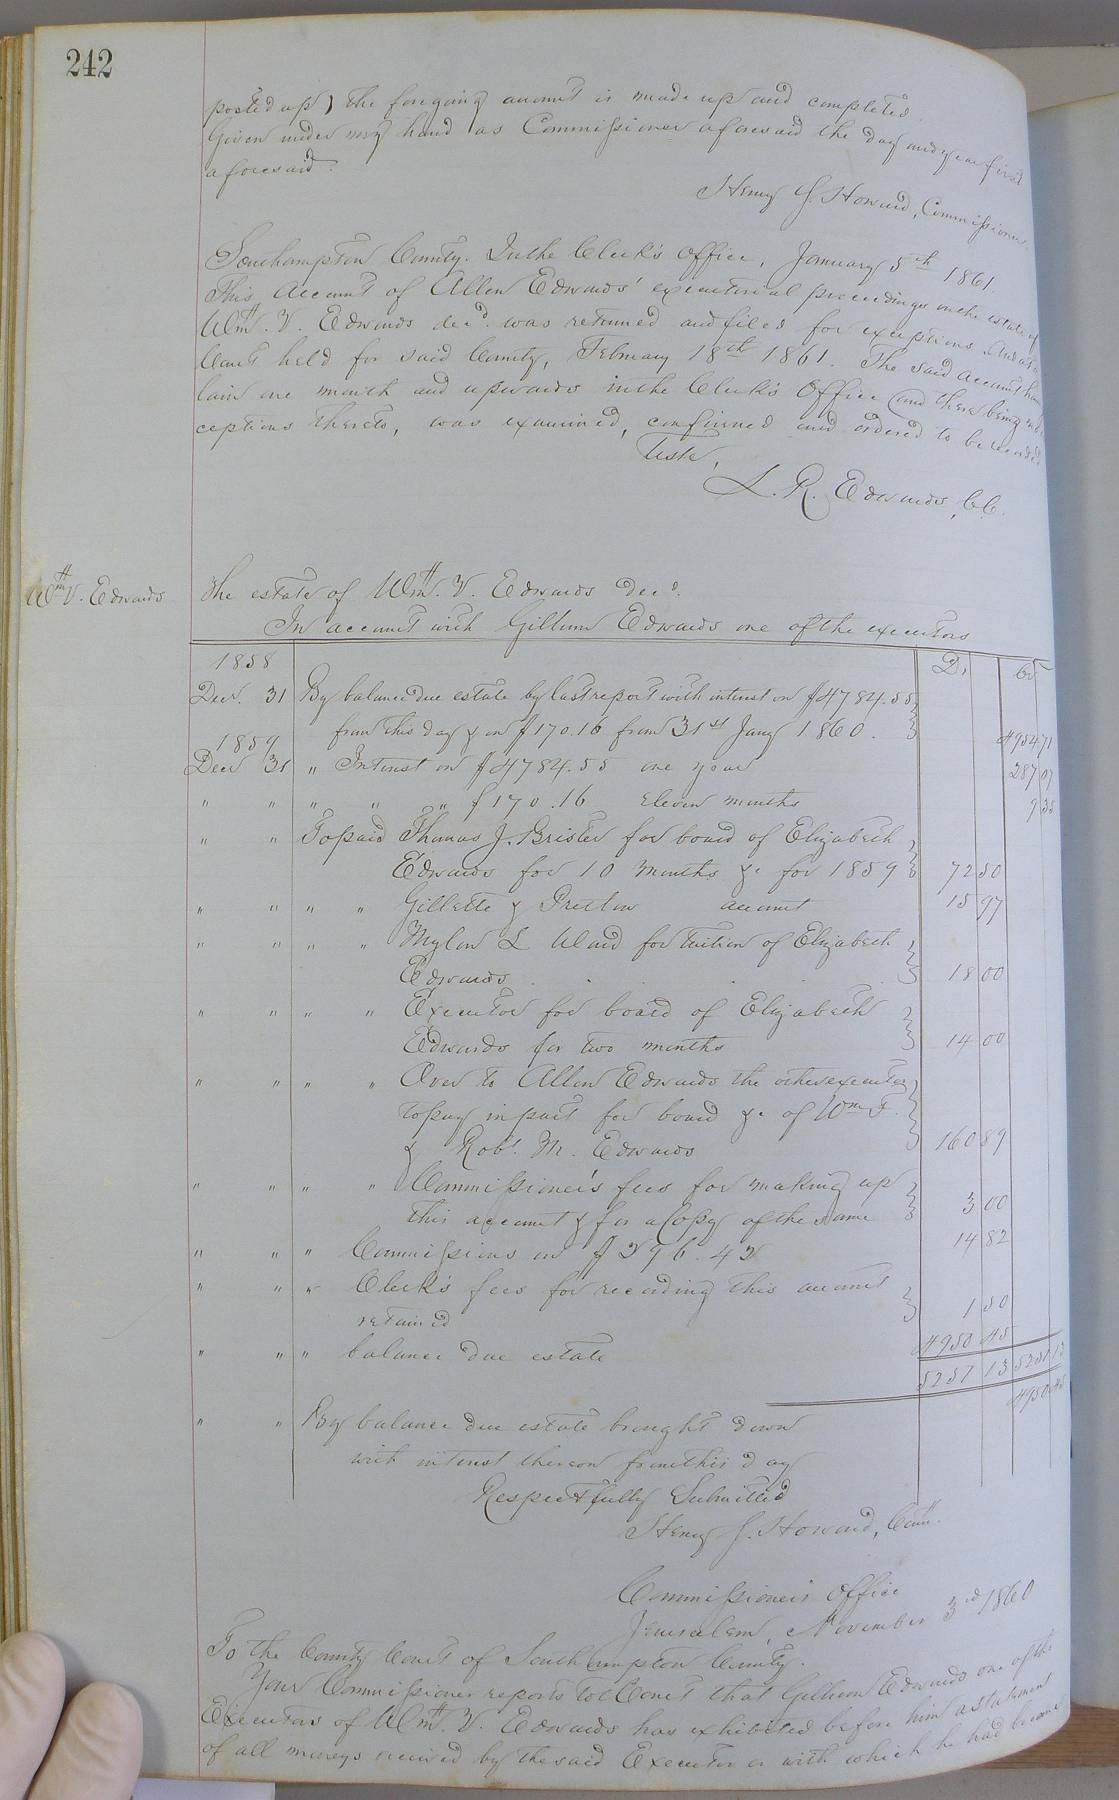 242
posted up) the foregoing account is made up and completed.
Given under my hand as Commissioner aforesaid the day and year first
aforesaid.
Henry J. Howard, Commissioner
Southampton County. In the Clerk's Office, January 5th 1861
This Account of Allen Edwards' executorial proceedings on the estate of
Wm. V. Edwards decd. was returned and filed for exceptions. And at a
Court held for said County, February 18th 1861. The said account having
lain one month and upwards in the Clerk's Office (and there being no ex
ceptions thereto, was examined, confirmed and ordered to be recorded
Teste,
L. R. Edwards, C.C.
Wm V. Edwards
The estate of Wm. V. Edwards decd.
In account with Gillum Edwards one of the executors
1858 Dr. Cr
Decr. 31 By balance due estate by last report with interest on $4784.55
from this day & on $170.16 from 31st Jany 1860. 4954 71
1859
Decr 31 " Interest on $4784.55 one year 287 07
" " " " " $170.16 eleven months 9 35
" " To paid Thomas J. Brister for board of Elizabeth
Edwards for 10 months &c for 1859 72 50
" " " " Gillette & Pretlow account 15 97
" " " " Mylon L Ward for tuition of Elizabeth
Edwards . . . . 18 00
" " " " Executor for board of Elizabeth
Edwards for two months 14 00
" " " " Over to Allen Edwards the other executor
to pay in part for board &c of Wm F.
& Robt. M. Edwards 160 89
" " " " Commissioner's fees for making up
this account & for a Copy of the same 3 00
" " " Commissions on $296.42 14 82
" " " Clerk's fees for recording this account
retained 1 50
" " " balance due estate 4950 45
5251 13 5251 13
4950 45
" " By balance due estate brought down
with interest thereon from this day
Respectfully Submitted
Henry J. Howard, Comr.
Commissioner's Office
Jerusalem, November 3rd 1860
To the County Court of Southampton County.
Your Commissioner reports to Court that Gillum Edwards one of the
Executors of Wm. V. Edwards has exhibited before him a statement
of all moneys received by the said Executor or with which he had become